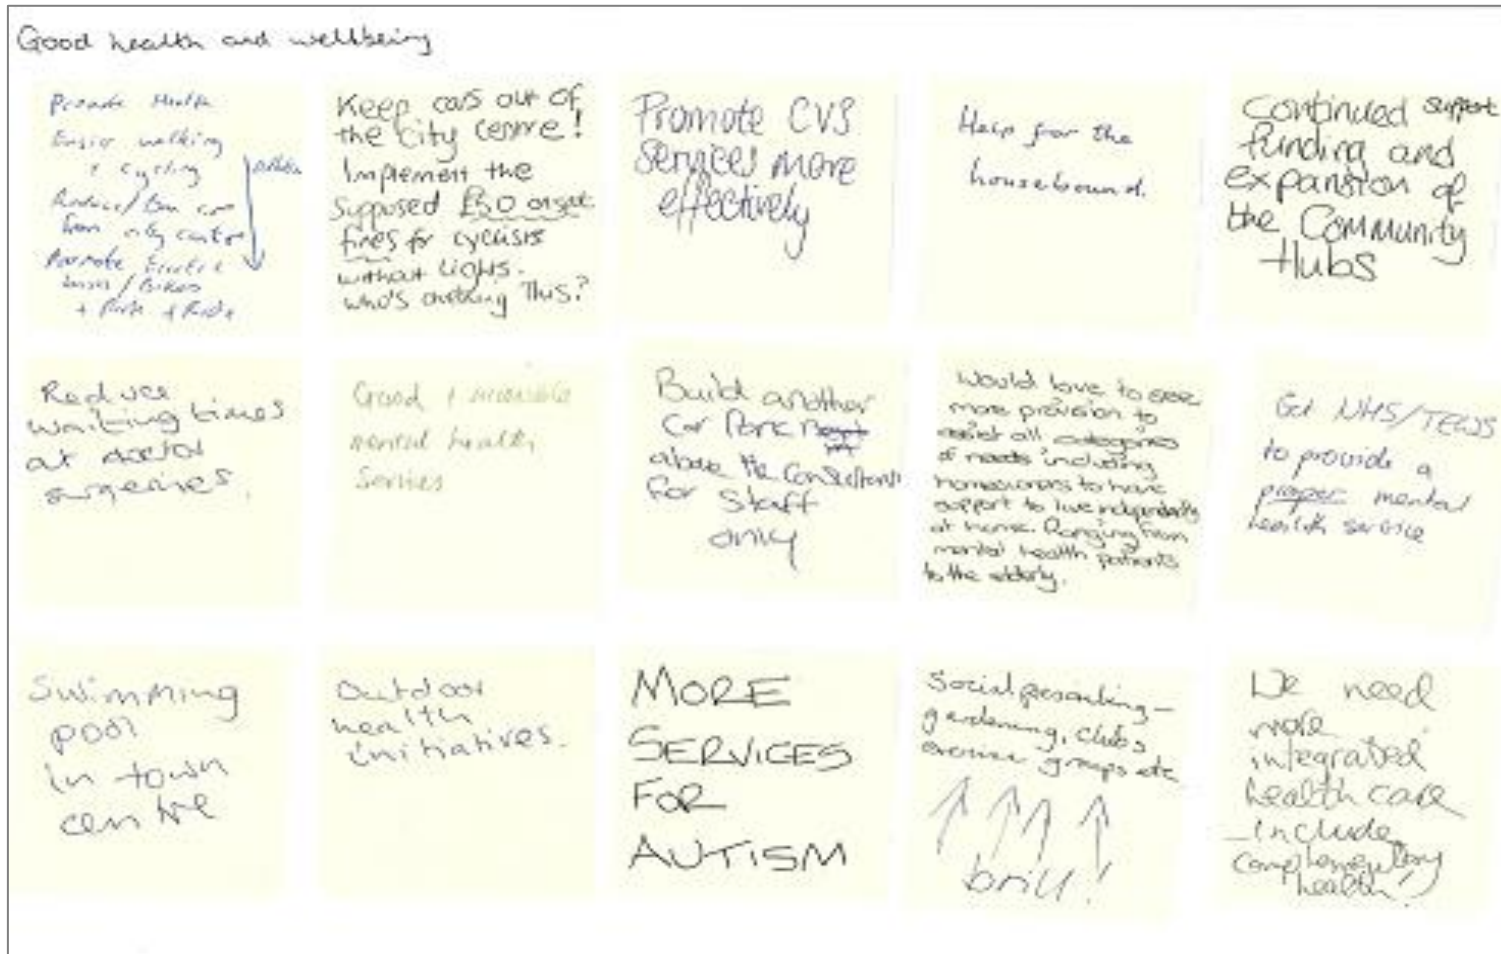 Good health and wellbeing
Promote Health
Easier walking
+ cycling
Reduce/Ban cars
from city centre
Promote Electric
buses/Bikes
+ Park + Ride
Keep cars out of
the city centre!
Implement the
supposed £50 onspot
fines for cyclists
without lights.
who's checking This?
Promote CVS
services more
effectively
Help for the
housebound.
Continued support
funding and
expansion of
the Community
Hubs
Reduce
waiting times
at doctor
surgeries.
Good + accessible
mental health
Services
Build another
Car Park
above the
For Staff
only
Would love to see
more provision to
assist all categories
of needs including
homeowners to have
support to live independently
at home. Ranging from
mental health patients
to the elderly.
Get NHS/TEWS
to provide a
proper mental
health service
Swimming
pool
in town
centre
Outdoor
health
initiatives.
MORE
SERVICES
FOR
AUTISM
Social prescribing –
gardening, clubs
exercise groups etc
brill!
We need
more
integrated
health care
– include
complementary
health!)